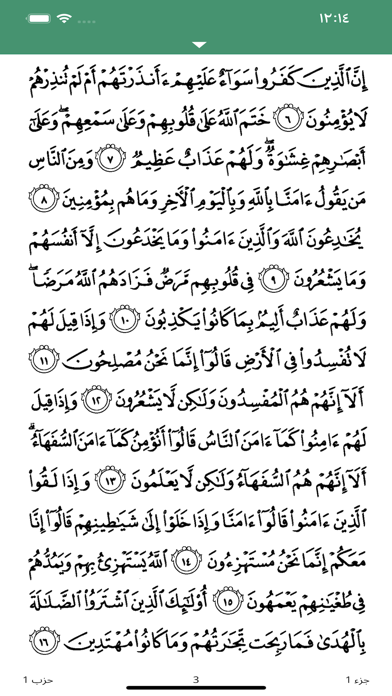 ١٢:١٤
إِنَّ ٱلَّذِينَ كَفَرُوا۟ سَوَآءٌ عَلَيْهِمْ ءَأَنذَرْتَهُمْ أَمْ لَمْ تُنذِرْهُمْ
لَا يُؤْمِنُونَ ٦ خَتَمَ ٱللَّهُ عَلَىٰ قُلُوبِهِمْ وَعَلَىٰ سَمْعِهِمْ ۖ وَعَلَىٰٓ
أَبْصَٰرِهِمْ غِشَٰوَةٌ ۖ وَلَهُمْ عَذَابٌ عَظِيمٌ ٧ وَمِنَ ٱلنَّاسِ
مَن يَقُولُ ءَامَنَّا بِٱللَّهِ وَبِٱلْيَوْمِ ٱلْءَاخِرِ وَمَا هُم بِمُؤْمِنِينَ ٨
يُخَٰدِعُونَ ٱللَّهَ وَٱلَّذِينَ ءَامَنُوا۟ وَمَا يَخْدَعُونَ إِلَّآ أَنفُسَهُمْ
وَمَا يَشْعُرُونَ ٩ فِى قُلُوبِهِم مَّرَضٌ فَزَادَهُمُ ٱللَّهُ مَرَضًا ۖ
وَلَهُمْ عَذَابٌ أَلِيمٌۢ بِمَا كَانُوا۟ يَكْذِبُونَ ١٠ وَإِذَا قِيلَ لَهُمْ
لَا تُفْسِدُوا۟ فِى ٱلْأَرْضِ قَالُوٓا۟ إِنَّمَا نَحْنُ مُصْلِحُونَ ١١
أَلَآ إِنَّهُمْ هُمُ ٱلْمُفْسِدُونَ وَلَٰكِن لَّا يَشْعُرُونَ ١٢ وَإِذَا قِيلَ
لَهُمْ ءَامِنُوا۟ كَمَآ ءَامَنَ ٱلنَّاسُ قَالُوٓا۟ أَنُؤْمِنُ كَمَآ ءَامَنَ ٱلسُّفَهَآءُ ۗ
أَلَآ إِنَّهُمْ هُمُ ٱلسُّفَهَآءُ وَلَٰكِن لَّا يَعْلَمُونَ ١٣ وَإِذَا لَقُوا۟
ٱلَّذِينَ ءَامَنُوا۟ قَالُوٓا۟ ءَامَنَّا وَإِذَا خَلَوْا۟ إِلَىٰ شَيَٰطِينِهِمْ قَالُوٓا۟ إِنَّا
مَعَكُمْ إِنَّمَا نَحْنُ مُسْتَهْزِءُونَ ١٤ ٱللَّهُ يَسْتَهْزِئُ بِهِمْ وَيَمُدُّهُمْ
فِى طُغْيَٰنِهِمْ يَعْمَهُونَ ١٥ أُو۟لَٰٓئِكَ ٱلَّذِينَ ٱشْتَرَوُا۟ ٱلضَّلَٰلَةَ
بِٱلْهُدَىٰ فَمَا رَبِحَت تِّجَٰرَتُهُمْ وَمَا كَانُوا۟ مُهْتَدِينَ ١٦
جزء 1 3 حزب 1